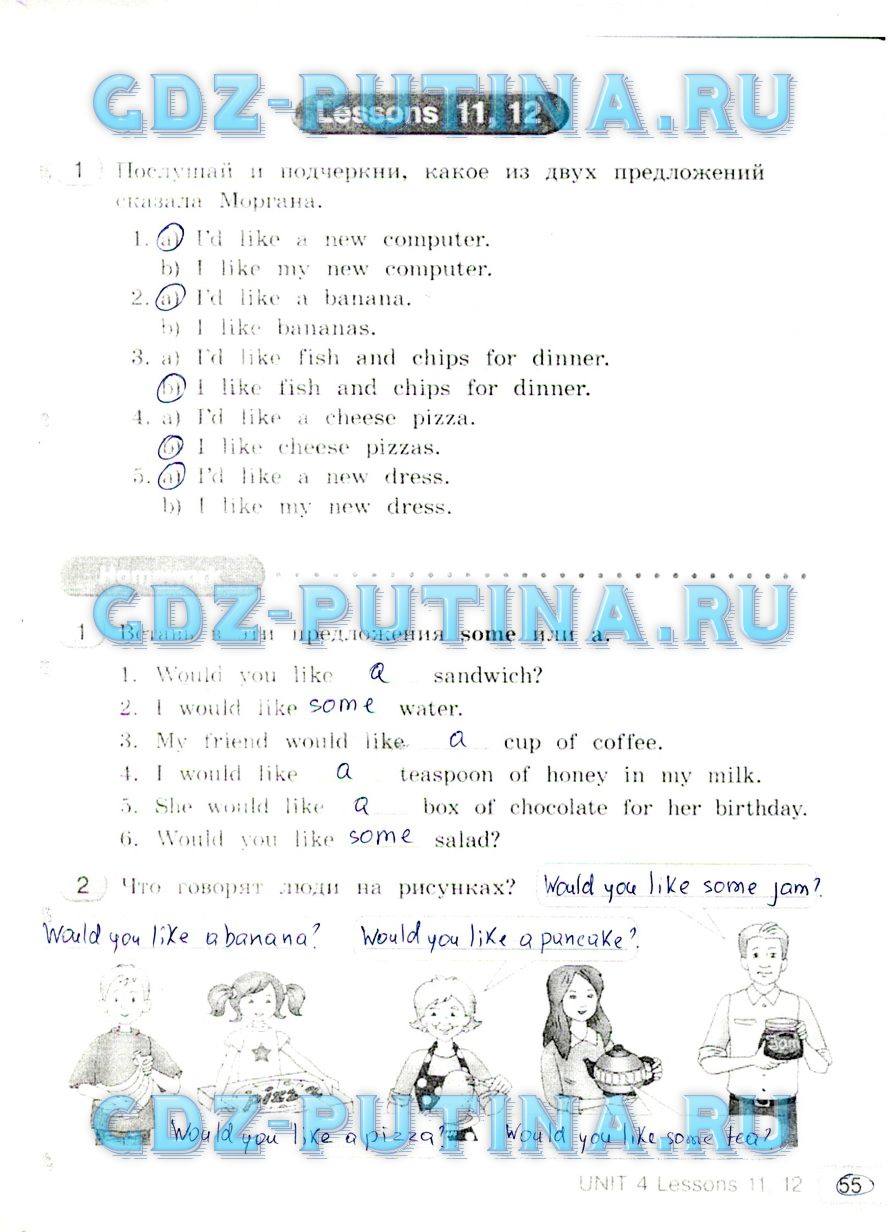 GDZ-PUTINA.RU
Lessons 11, 12
1 Послушай и подчеркни, какое из двух предложений
сказала Моргана.
1. a) I'd like a new computer.
b) I like my new computer.
2. a) I'd like a banana.
b) I like bananas.
3. a) I'd like fish and chips for dinner.
b) I like fish and chips for dinner.
4. a) I'd like a cheese pizza.
b) I like cheese pizzas.
5. a) I'd like a new dress.
b) I like my new dress.
Homework
GDZ-PUTINA.RU
1 Вставь в эти предложения some или a.
1. Would you like a sandwich?
2. I would like some water.
3. My friend would like a cup of coffee.
4. I would like a teaspoon of honey in my milk.
5. She would like a box of chocolate for her birthday.
6. Would you like some salad?
2 Что говорят люди на рисунках? Would you like some jam?
Would you like a banana? Would you like a puncake?
Jam
pizza
GDZ-PUTINA.RU
Would you like a pizza? Would you like some tea?
UNIT 4 Lessons 11, 12 55